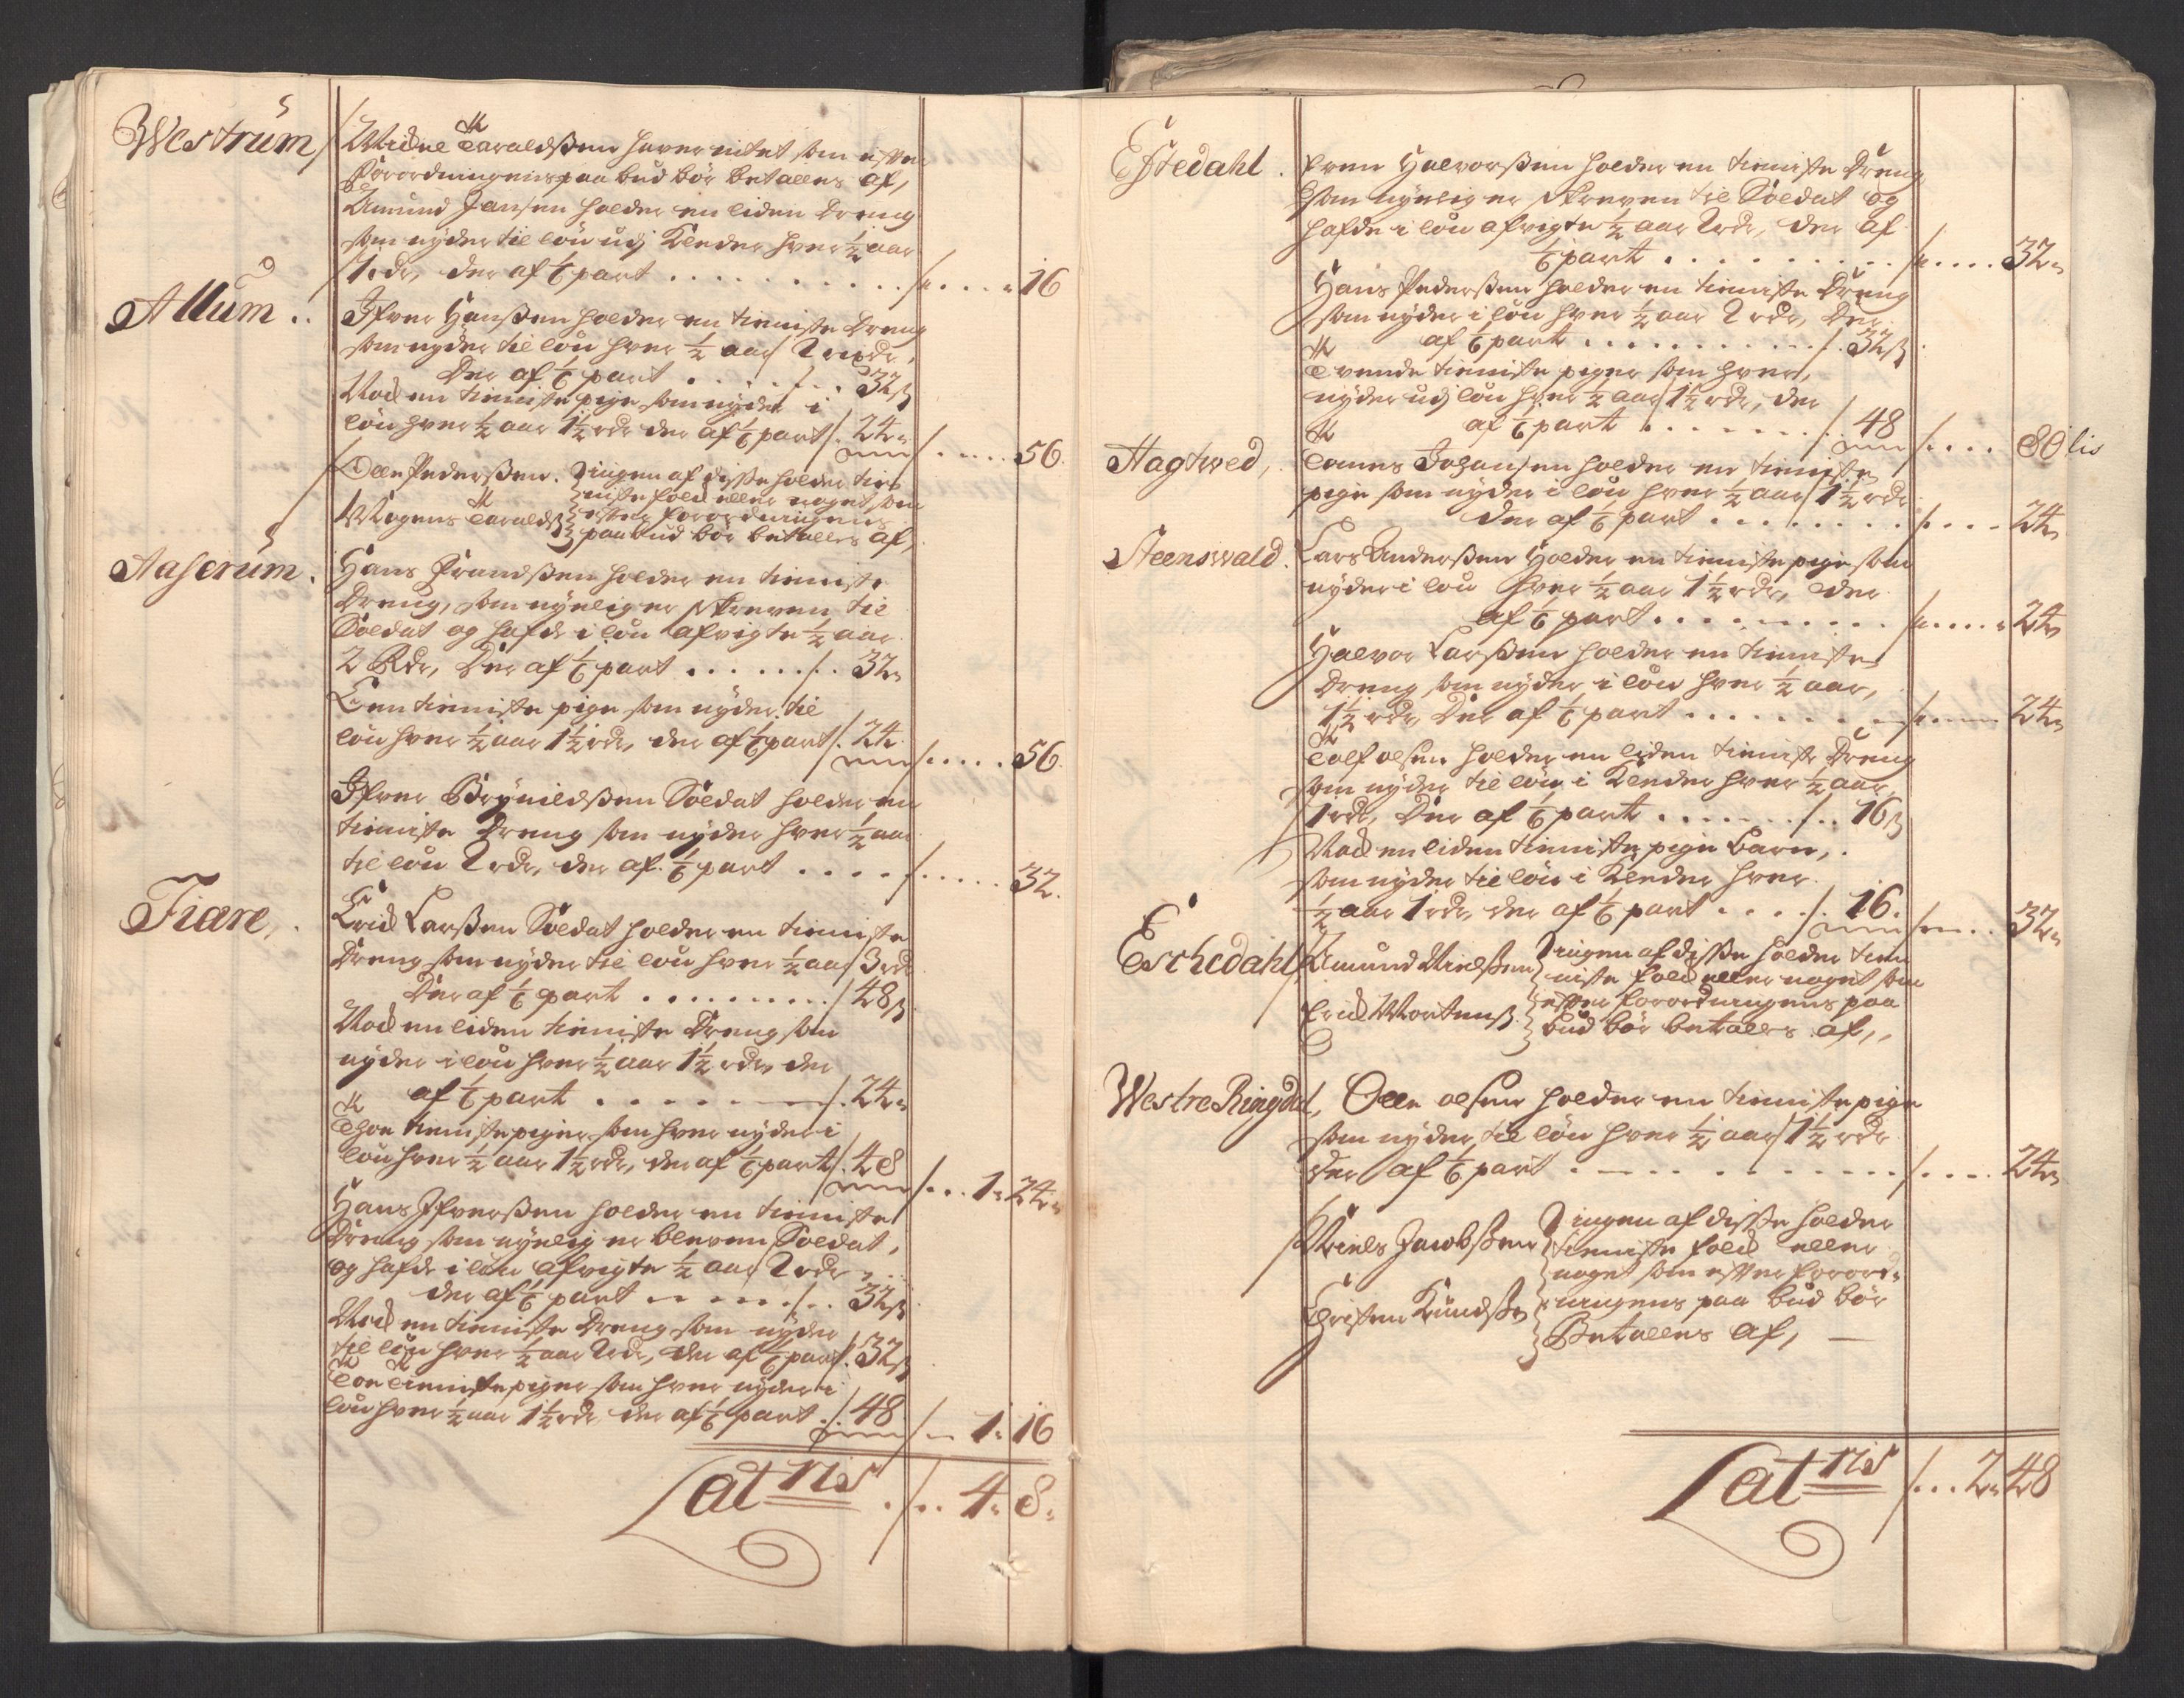 Westrum
Taraldßen hafver intet som efter
Forordningens paabud bør betalles af,
Amund Jansen holder en liden Dreng
som nyder til løn udj Klæder hver ½ aar
1 rdr, der af 1/6 part . . . . . 16
Allum . .
Ifver Hanßen holder en tieniste Dreng
som nyder til løn hver ½ aar 2 rixdr,
Der af 1/6 part . . . . 32 ß
Nock en tieniste pige som nyder i
løn hver ½ aar 1½ rdr der af 1/6 part 24
56
Olle Pederßen. ingen af disse holder tie-
niste folck eller noget som
Mogens Taraldß efter forordningens
paabud bør betalles af,
Aaserum .
Hans Frandßen holder en tieniste
Dreng, som nyelig er skreven til
Soldat og hafde i løn afvigte ½ aar
2 Rdr, Der af 1/6 part . . . . . . 32
En tieniste pige som nyder til
løn hver ½ aar 1½ rdr, der af 1/6 part 24
56
Ifver Brynildßen Soldat holder en
tieniste Dreng som nyder hver ½ aar
til løn 2 rdr, der af 1/6 part . . . . 32.
Fiare, .
Erick Larßen Soldat holder en tieniste
Dreng som nyder til løn hver ½ aar 3 rdr
Der af 1/6 part . . . . . . . . . 48 ß
Nock en liden tieniste Dreng som
nyder i løn hver ½ aar 1½ rdr der
af 1/6 part . . . . . . 24
Thoe tieniste piger som hver nyder i
løn hver ½ aar 1½ rdr, der af 1/6 part 48
1 24
Hans Ifverßen holder en tieniste
Dreng som nyelig er bleven Soldat,
og hafde i løn afvigte ½ aar 2 rdr
der af 1/6 part . . . . 32 ß
Nock en tieniste Dreng som nyder
til løn hver ½ aar 2 rdr, der af 1/6 part 32 ß
Toe tieniste piger som hver nyder i
løn hver ½ aar 1½ rdr der af 1/6 part . 48
1 16
Latris . . . 4 8
Eftedahl .
Halvorßen holder en tieniste Dreng
som nyelig er skreven til Soldat og
hafde i løn afvigte ½ aar 2 rdr, der af
1/6 part . . . . . . . . . 32
Hans Pederßen holder en tieniste Dreng
som nyder i løn hver ½ aar 2 rdr, Der
af 1/6 part . . . . . . . . . 32 ß
Tvende tieniste piger som hver,
nyder udj løn hver ½ aar 1½ rdr, der
af 1/6 part . . . . . . . 48
80
Hagtwed,
Johansen holder en tieniste
pige som nyder i løn hver ½ aar 1½ rdr
der af 1/6 part . . . . . . . . 24
Steenswald .
Lars Anderßen Holder en tieniste pige som
nyder i løn hver ½ aar 1½ rdr, der
af 1/6 part . . . . . . . . . . 24
Halvor Larßen holder en tieniste
Dreng som nyder i løn hver ½ aar,
1½ rdr, Der af 1/6 part . . . . . . . 24
Tolf olsen holder en liden tieniste Dreng
som nyder til løn i Klæder hver ½ aar
1 rdr, Der af 1/6 part . . . . . . 16 ß
Nock en liden tieniste pige Barn,
som nyder til løn i Klæder hver
½ aar 1 rdr, der af 1/6 part . . . . 16.
32
Eschedahl
Amund Nielßen ingen af disse holder tien-
niste folck eller noget som
Erick Mortenß. efter forordningens paa
bud bør betalles af,
Westre Ringdal,
Olle olsen holder en tieniste pige
som nyder til løn hver ½ aar 1½ rdr
der af 1/6 part . . . . . . . . 24
Niels Jacobßen ingen af disse holder
tieniste folck eller
noget som efter forord-
Christen Knudßen ningens paa bud bør
Betalles af,
Latris . . . 2 48